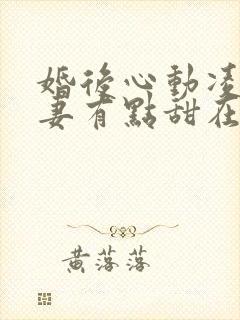 婚後心動凌
妻有點甜在
黃落落